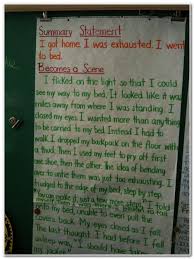 Summary Statement
I got home. I was exhausted. I went
to bed.
Becomes a Scene
I flicked on the light so that I could
see my way to my bed. It looked like it was
miles away from where I was standing. I
closed my eyes. I wanted more than anything
to be carried to my bed. Instead I had to
walk. I dropped my backpack on the floor with
a thud. Then I used my feet to pry off first
one shoe, then the other. The idea of bending
over to untie them was just too exhausting. I
trudged to the edge of my bed, step by step
onto my bed, unable to even pull the
covers over me. My eyes closed as if
the last thought I had before I fell
asleep was, "I should have